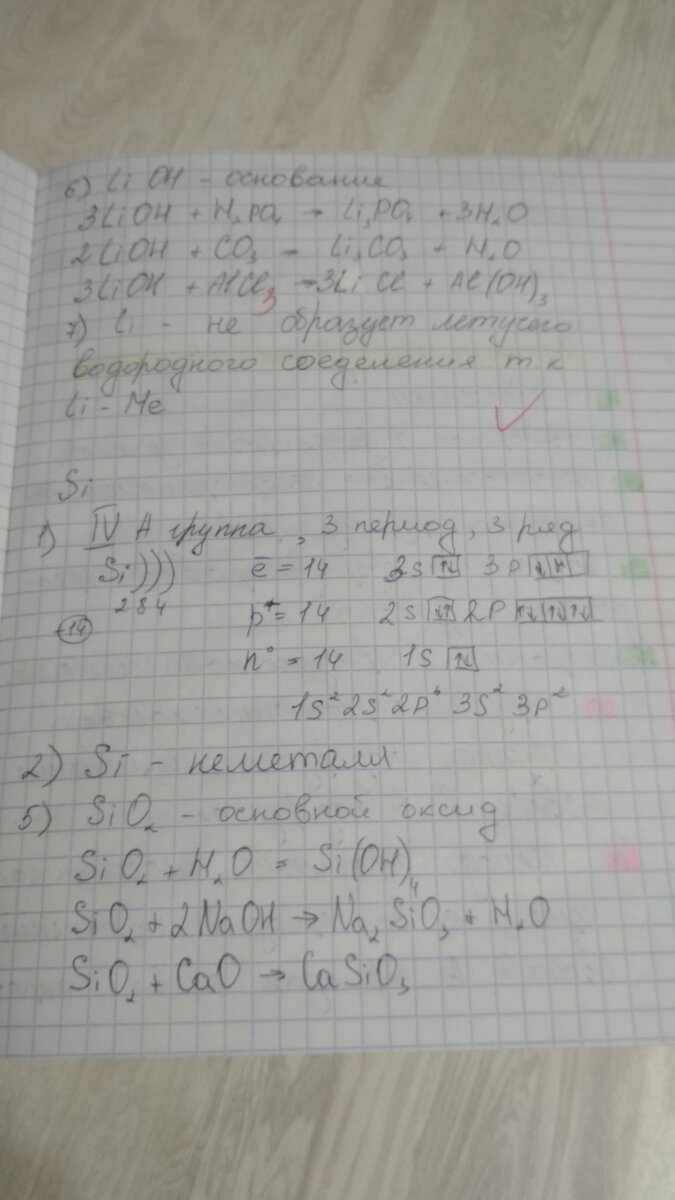 6) LiOH - основание
3LiOH + H₃PO₄ → Li₃PO₄ + 3H₂O
2LiOH + CO₃ → Li₂CO₃ + H₂O
3LiOH + AlCl₃ → 3LiCl + Al(OH)₃
7) Li - не образует летусего
водородного соеделения т.к
Li - Me
Si
1) IV A группа, 3 период, 3 ряд
Si))) ē = 14 3s ↑↓ 3p ↓↓
2 8 4
+14 p⁺ = 14 2s ↓↑ 2p ↑↓ ↑↓ ↑↓
n° = 14 1s ↑↓
1s² 2s² 2p⁶ 3s² 3p²
2) Si - неметалл
5) SiO₂ - основной оксид
SiO₂ + H₂O = Si(OH)₄
SiO₂ + 2NaOH → Na₂SiO₃ + H₂O
SiO₂ + CaO → CaSiO₃